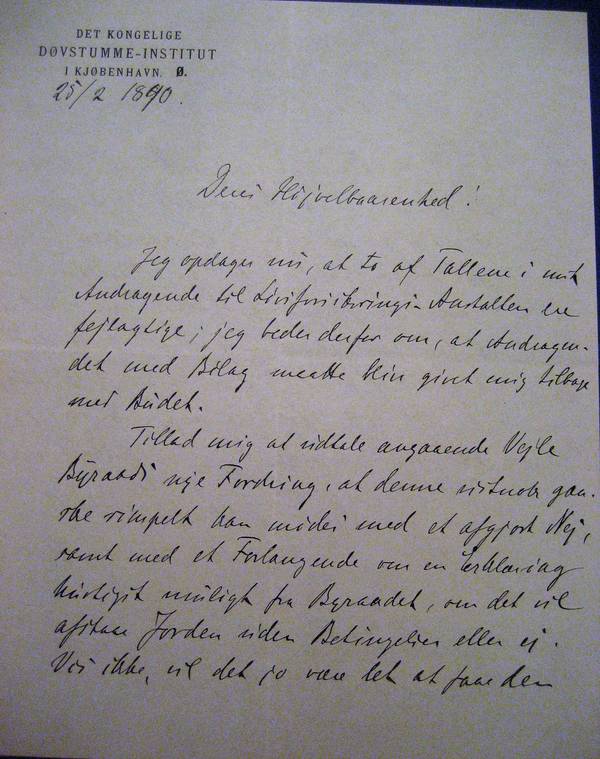 DET KONGELIGE
DØVSTUMME-INSTITUT
I KJØBENHAVN. Ø.
25/2 1890.
Deres Højvelbaarenhed!
Jeg opdager nu, at to af Tallene i mit
Andragende til Livsforsikrings-Anstalten ere
fejlagtige; jeg beder derfor om, at Andragen-
det med Bilag maatte blive givet mig tilbage
med Budet.
Tillad mig at udtale angaaende Vejle
Byraads nye Fordring, at denne vistnok gan-
ske simpelt kan mødes med et afgjort Nej,
samt med et Forlangende om en Erklæring
hurtigst muligt fra Byraadet, om det vil
afstaae Jorden uden Betingelser eller ej.
Vil ikke, vil det jo være let at faae den